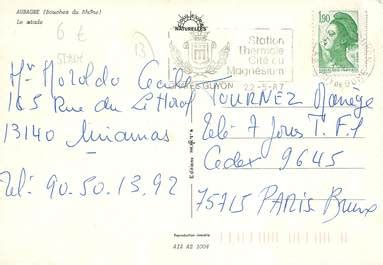 AUBAGNE (Bouches du Rhône)
Le stade
6 €
STADE
13
NATURELLES
Station
Thermale
Cité du
Magnésium
22-5-87
1,90
Mr Noroldo Cecile
165 Rue du Littoral
13140 Miramas
Tel: 90.50.13.92
TOURNEZ Manège
Télé 7 Jours T.F.1
Cedex 9645
75715 PARIS Brune
Editions
Reproduction interdite
A13 A2 1004